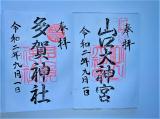 奉拝
山口大神宮
令和二年九月一日
奉拝
多賀神社
令和二年九月一日